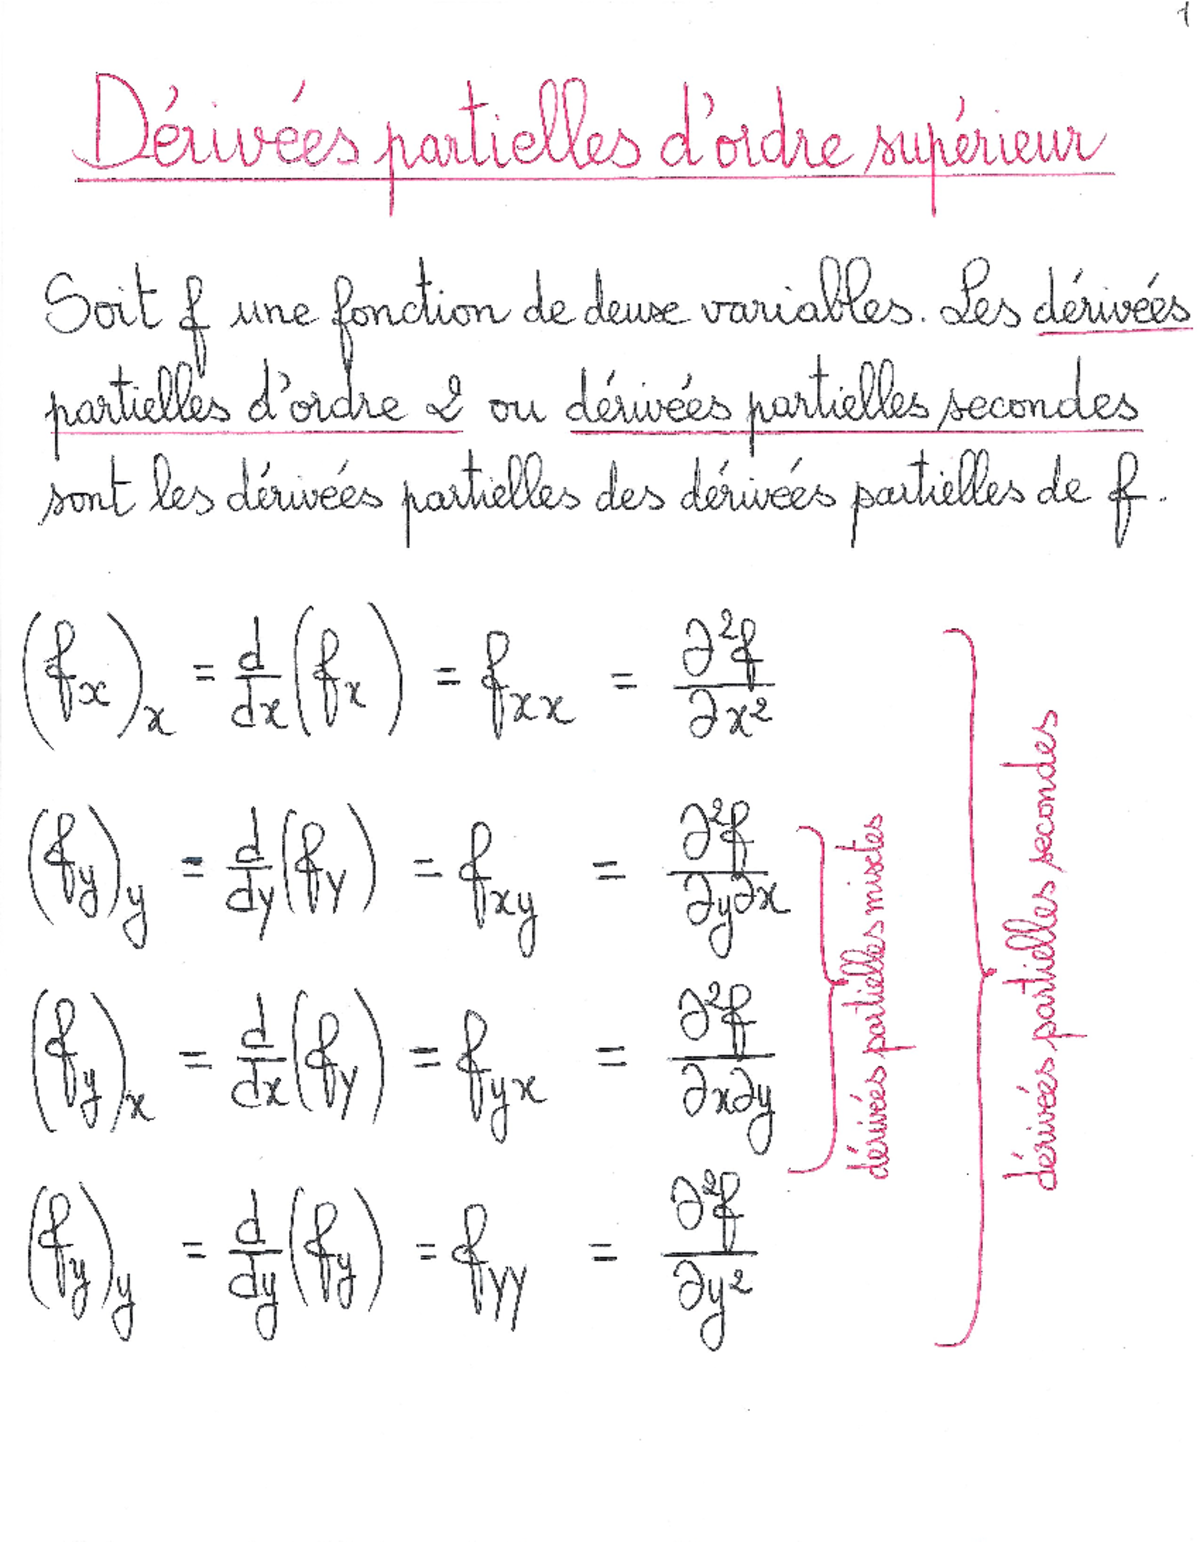 1
Dérivées partielles d'ordre supérieur
Soit f une fonction de deux variables. Les dérivées
partielles d'ordre 2 ou dérivées partielles secondes
sont les dérivées partielles des dérivées partielles de f.
(f_x)_x = d/dx (f_x) = f_xx = ∂²f/∂x²
(f_y)_y = d/dy (f_y) = f_xy = ∂²f/∂y∂x
(f_y)_x = d/dx (f_y) = f_yx = ∂²f/∂x∂y
(f_y)_y = d/dy (f_y) = f_yy = ∂²f/∂y²
dérivées partielles mixtes
dérivées partielles secondes